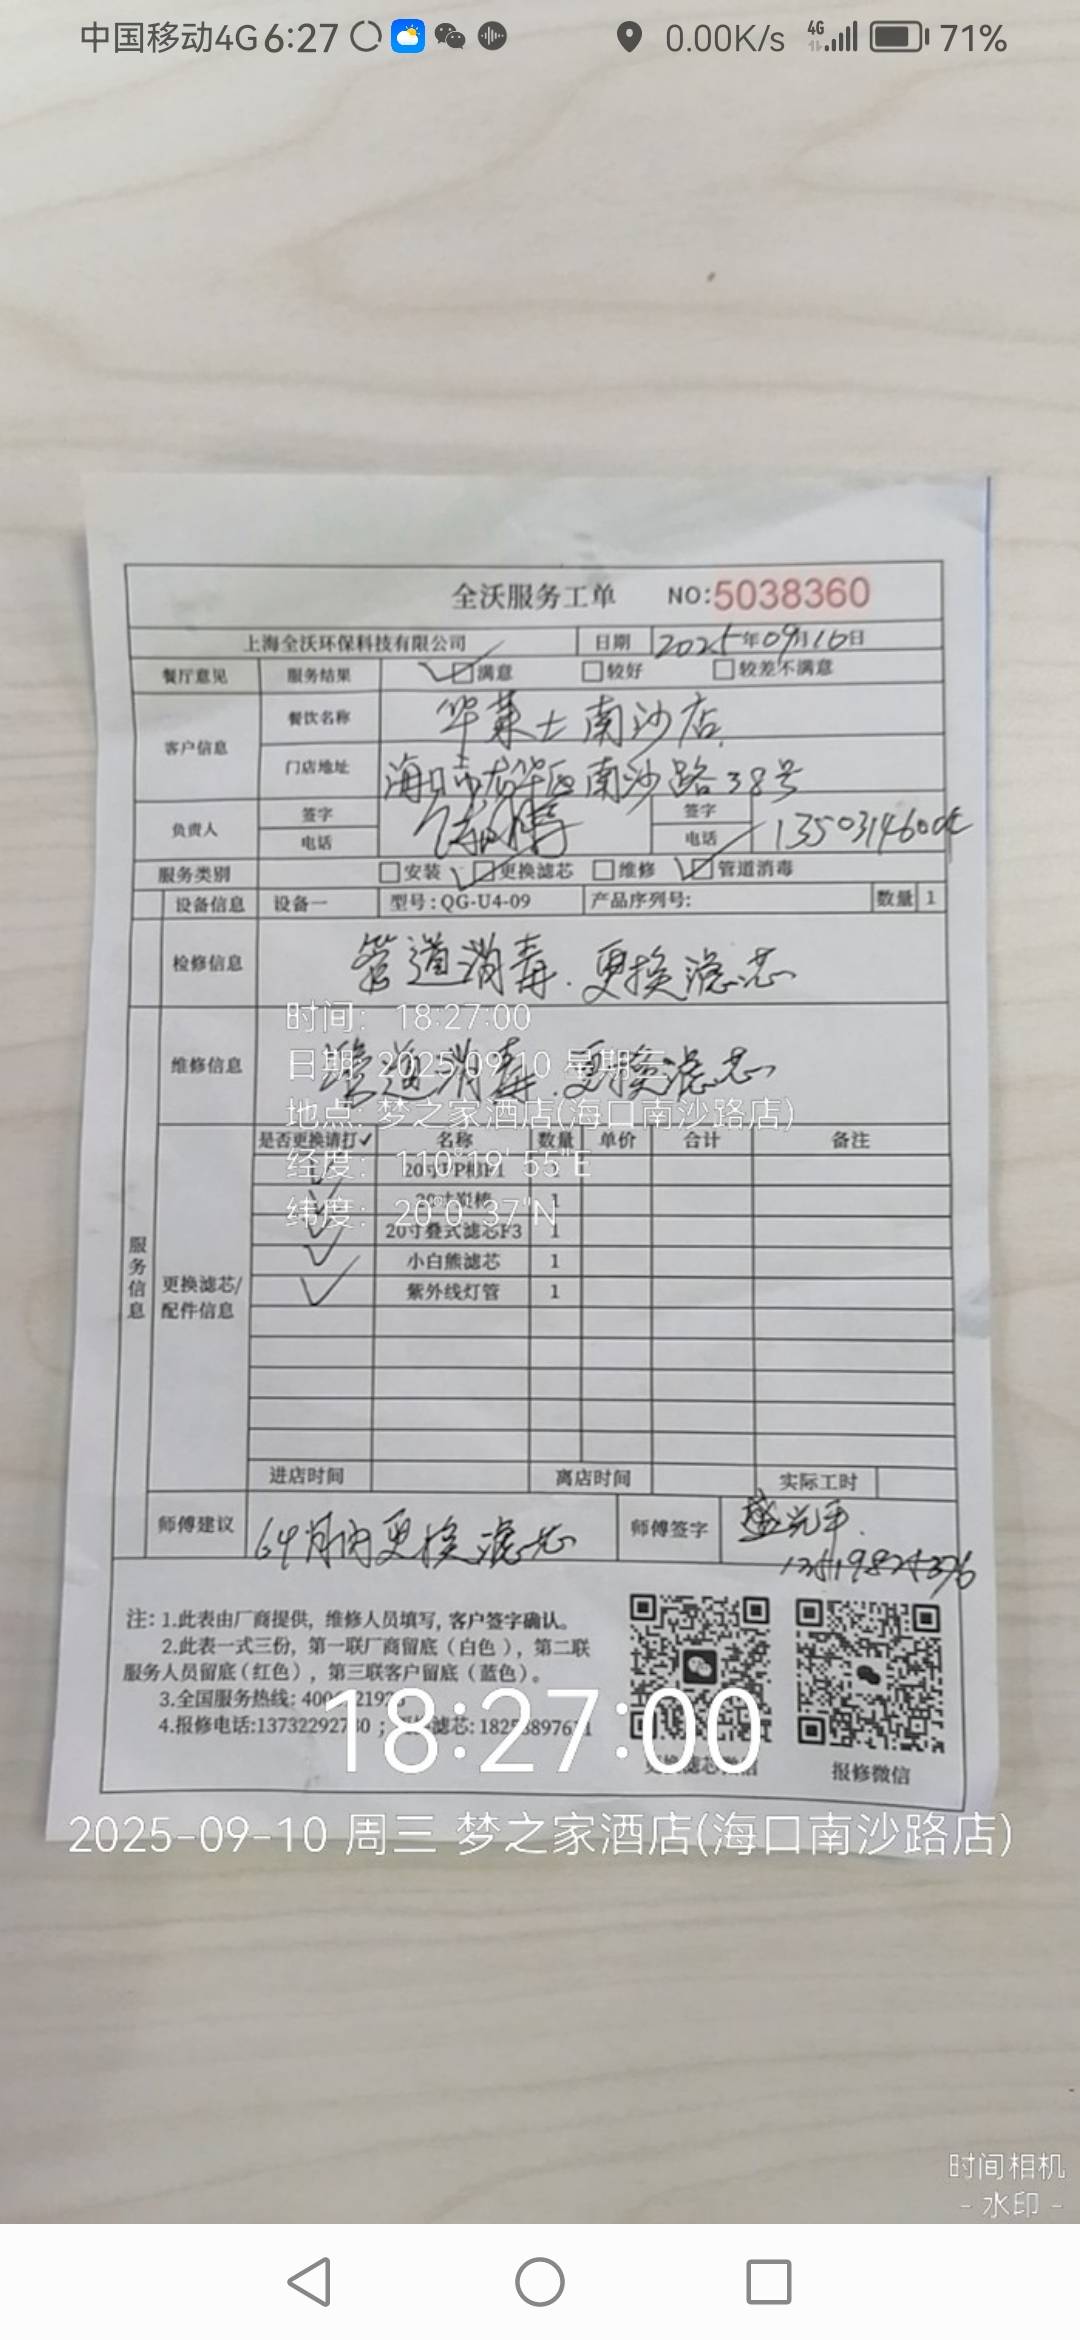 中国移动4G 6:27 0.00K/s 4G 71%
全沃服务工单 NO:5038360
上海全沃环保科技有限公司 日期 2025年09月10日
餐厅意见 服务结果 满意 较好 较差不满意
客户信息 餐饮名称 华莱士南沙店
门店地址 海口市龙华区南沙路38号
负责人 签字 签字
电话 电话
服务类别 安装 更换滤芯 维修 管道消毒
设备信息 设备一 型号:QG-U4-09 产品序列号: 数量 1
检修信息 管道消毒.更换滤芯
时间: 18:27:00
维修信息 管道消毒.更换滤芯
日期: 2025.09.10 星期三
地点: 梦之家酒店(海口南沙路店)
是否更换请打✓ 名称 数量 单价 合计 备注
经度: 110°19′55″E
纬度: 20°0′37″N
20寸叠式滤芯F3 1
小白熊滤芯 1
紫外线灯管 1
服务信息
更换滤芯/
配件信息
进店时间 离店时间 实际工时
师傅建议 更换滤芯 师傅签字
注: 1.此表由厂商提供, 维修人员填写, 客户签字确认。
2.此表一式三份, 第一联厂商留底(白色), 第二联
服务人员留底(红色), 第三联客户留底(蓝色)。
3.全国服务热线:
4.报修电话:
报修微信
18:27:00
2025-09-10 周三 梦之家酒店(海口南沙路店)
时间相机
- 水印 -